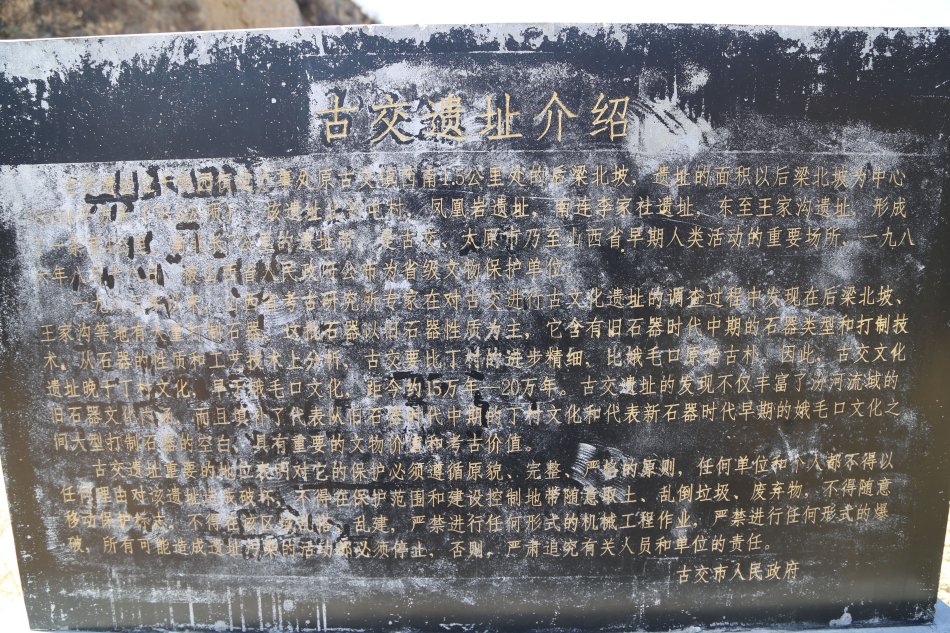 古交遗址介绍
原古交镇西南1.5公里处的后梁北坡，遗址的面积以后梁北坡为中心
该遗址 村，凤凰岩遗址，南连李家社遗址，东至王家沟遗址，形成
公里的遗址 是古交、太原市乃至山西省早期人类活动的重要场所，一九八
年八月 人民政府公布为省级文物保护单位。
一九 考古研究所专家在对古交进行古文化遗址的调查过程中发现在后梁北坡、
王家沟等地有大量打制石器，这批石器以旧石器性质为主，它含有旧石器时代中期的石器类型和打制技
术。从石器的性质和工艺技术上分析，古交要比丁村的进步精细，比娥毛口原始古朴，因此，古交文化
遗址晚于丁村文化，早于娥毛口文化，距今约15万年—20万年。古交遗址的发现不仅丰富了汾河流域的
旧石器文化内涵，而且填补了代表从旧石器时代中期的丁村文化和代表新石器时代早期的娥毛口文化之
间大型打制石器的空白，具有重要的文物价值和考古价值。
古交遗址重要的地位表明对它的保护必须遵循原貌、完整、严格的原则，任何单位和个人都不得以
任何理由对该遗址造成破坏，不得在保护范围和建设控制地带随意取土、乱倒垃圾、废弃物，不得随意
移动保护标志，不得在 区 乱建，严禁进行任何形式的机械工程作业，严禁进行任何形式的爆
破，所有可能造成遗址污染的活动都必须停止，否则，严肃追究有关人员和单位的责任。
古交市人民政府